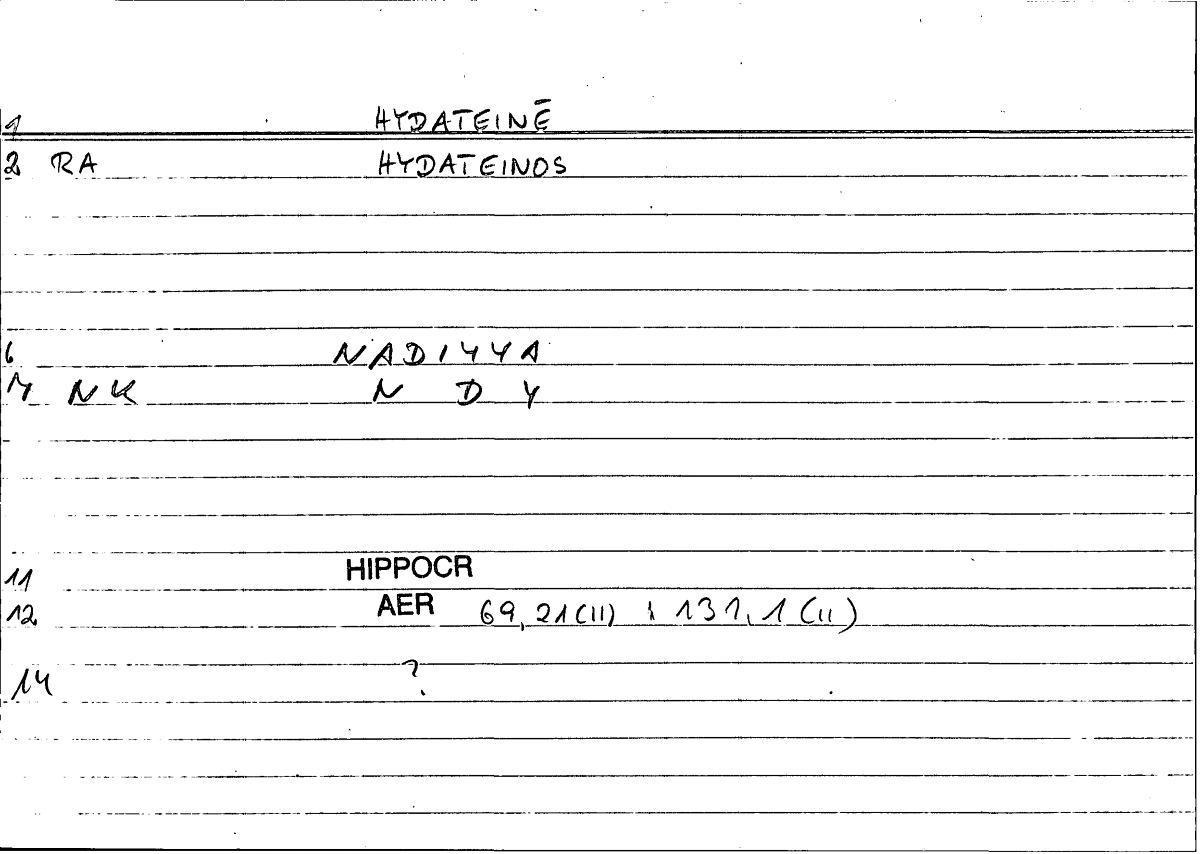 1 HYDATEINĒ
2 RA HYDATEINOS
6 NADIYYA
7 NK N D Y
11 HIPPOCR
12 AER 69,21(II) ; 131,1(II)
14 ?